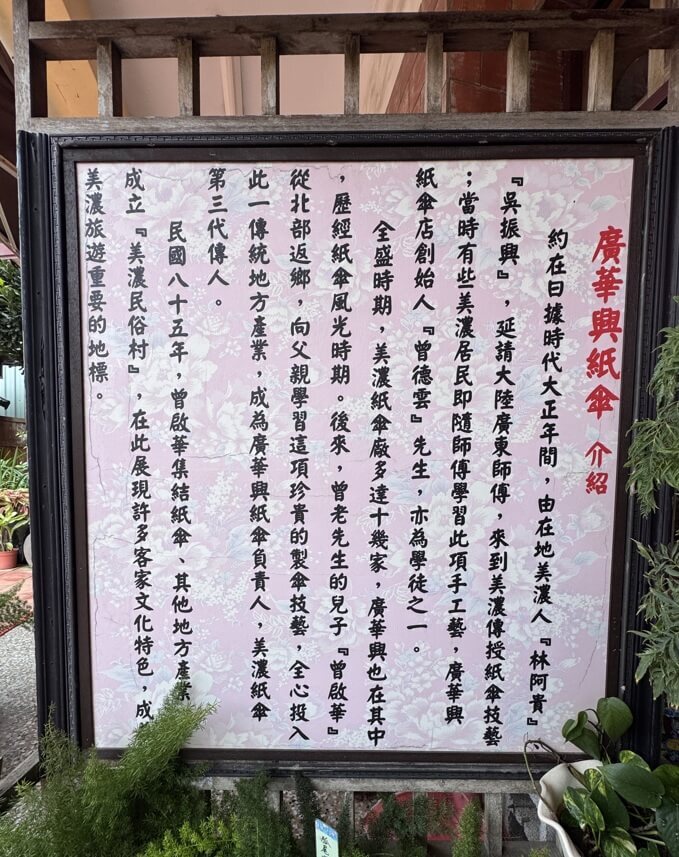 廣華興紙傘 介紹
約在日據時代大正年間，由在地美濃人『林阿貴』
『吳振興』，延請大陸廣東師傅，來到美濃傳授紙傘技藝
；當時有些美濃居民即隨師傅學習此項手工藝，廣華興
紙傘店創始人『曾德雲』先生，亦為學徒之一。
全盛時期，美濃紙傘廠多達十幾家，廣華興也在其中
，歷經紙傘風光時期。後來，曾老先生的兒子『曾啟華』
從北部返鄉，向父親學習這項珍貴的製傘技藝，全心投入
此一傳統地方產業，成為廣華興紙傘負責人，美濃紙傘
第三代傳人。
民國八十五年，曾啟華集結紙傘、其他地方產業
成立『美濃民俗村』，在此展現許多客家文化特色，成
美濃旅遊重要的地標。